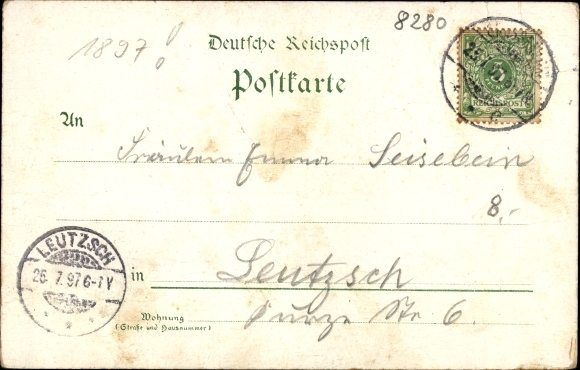 8280
1897!
Deutsche Reichspost
Postkarte
5
REICHSPOST
An
Fräulein Emma Seisebein
8,-
LEUTZSCH
26. 7. 97 6-7 V
in Leutzsch
Wohnung
(Straße und Hausnummer)
Kurze Str 6.